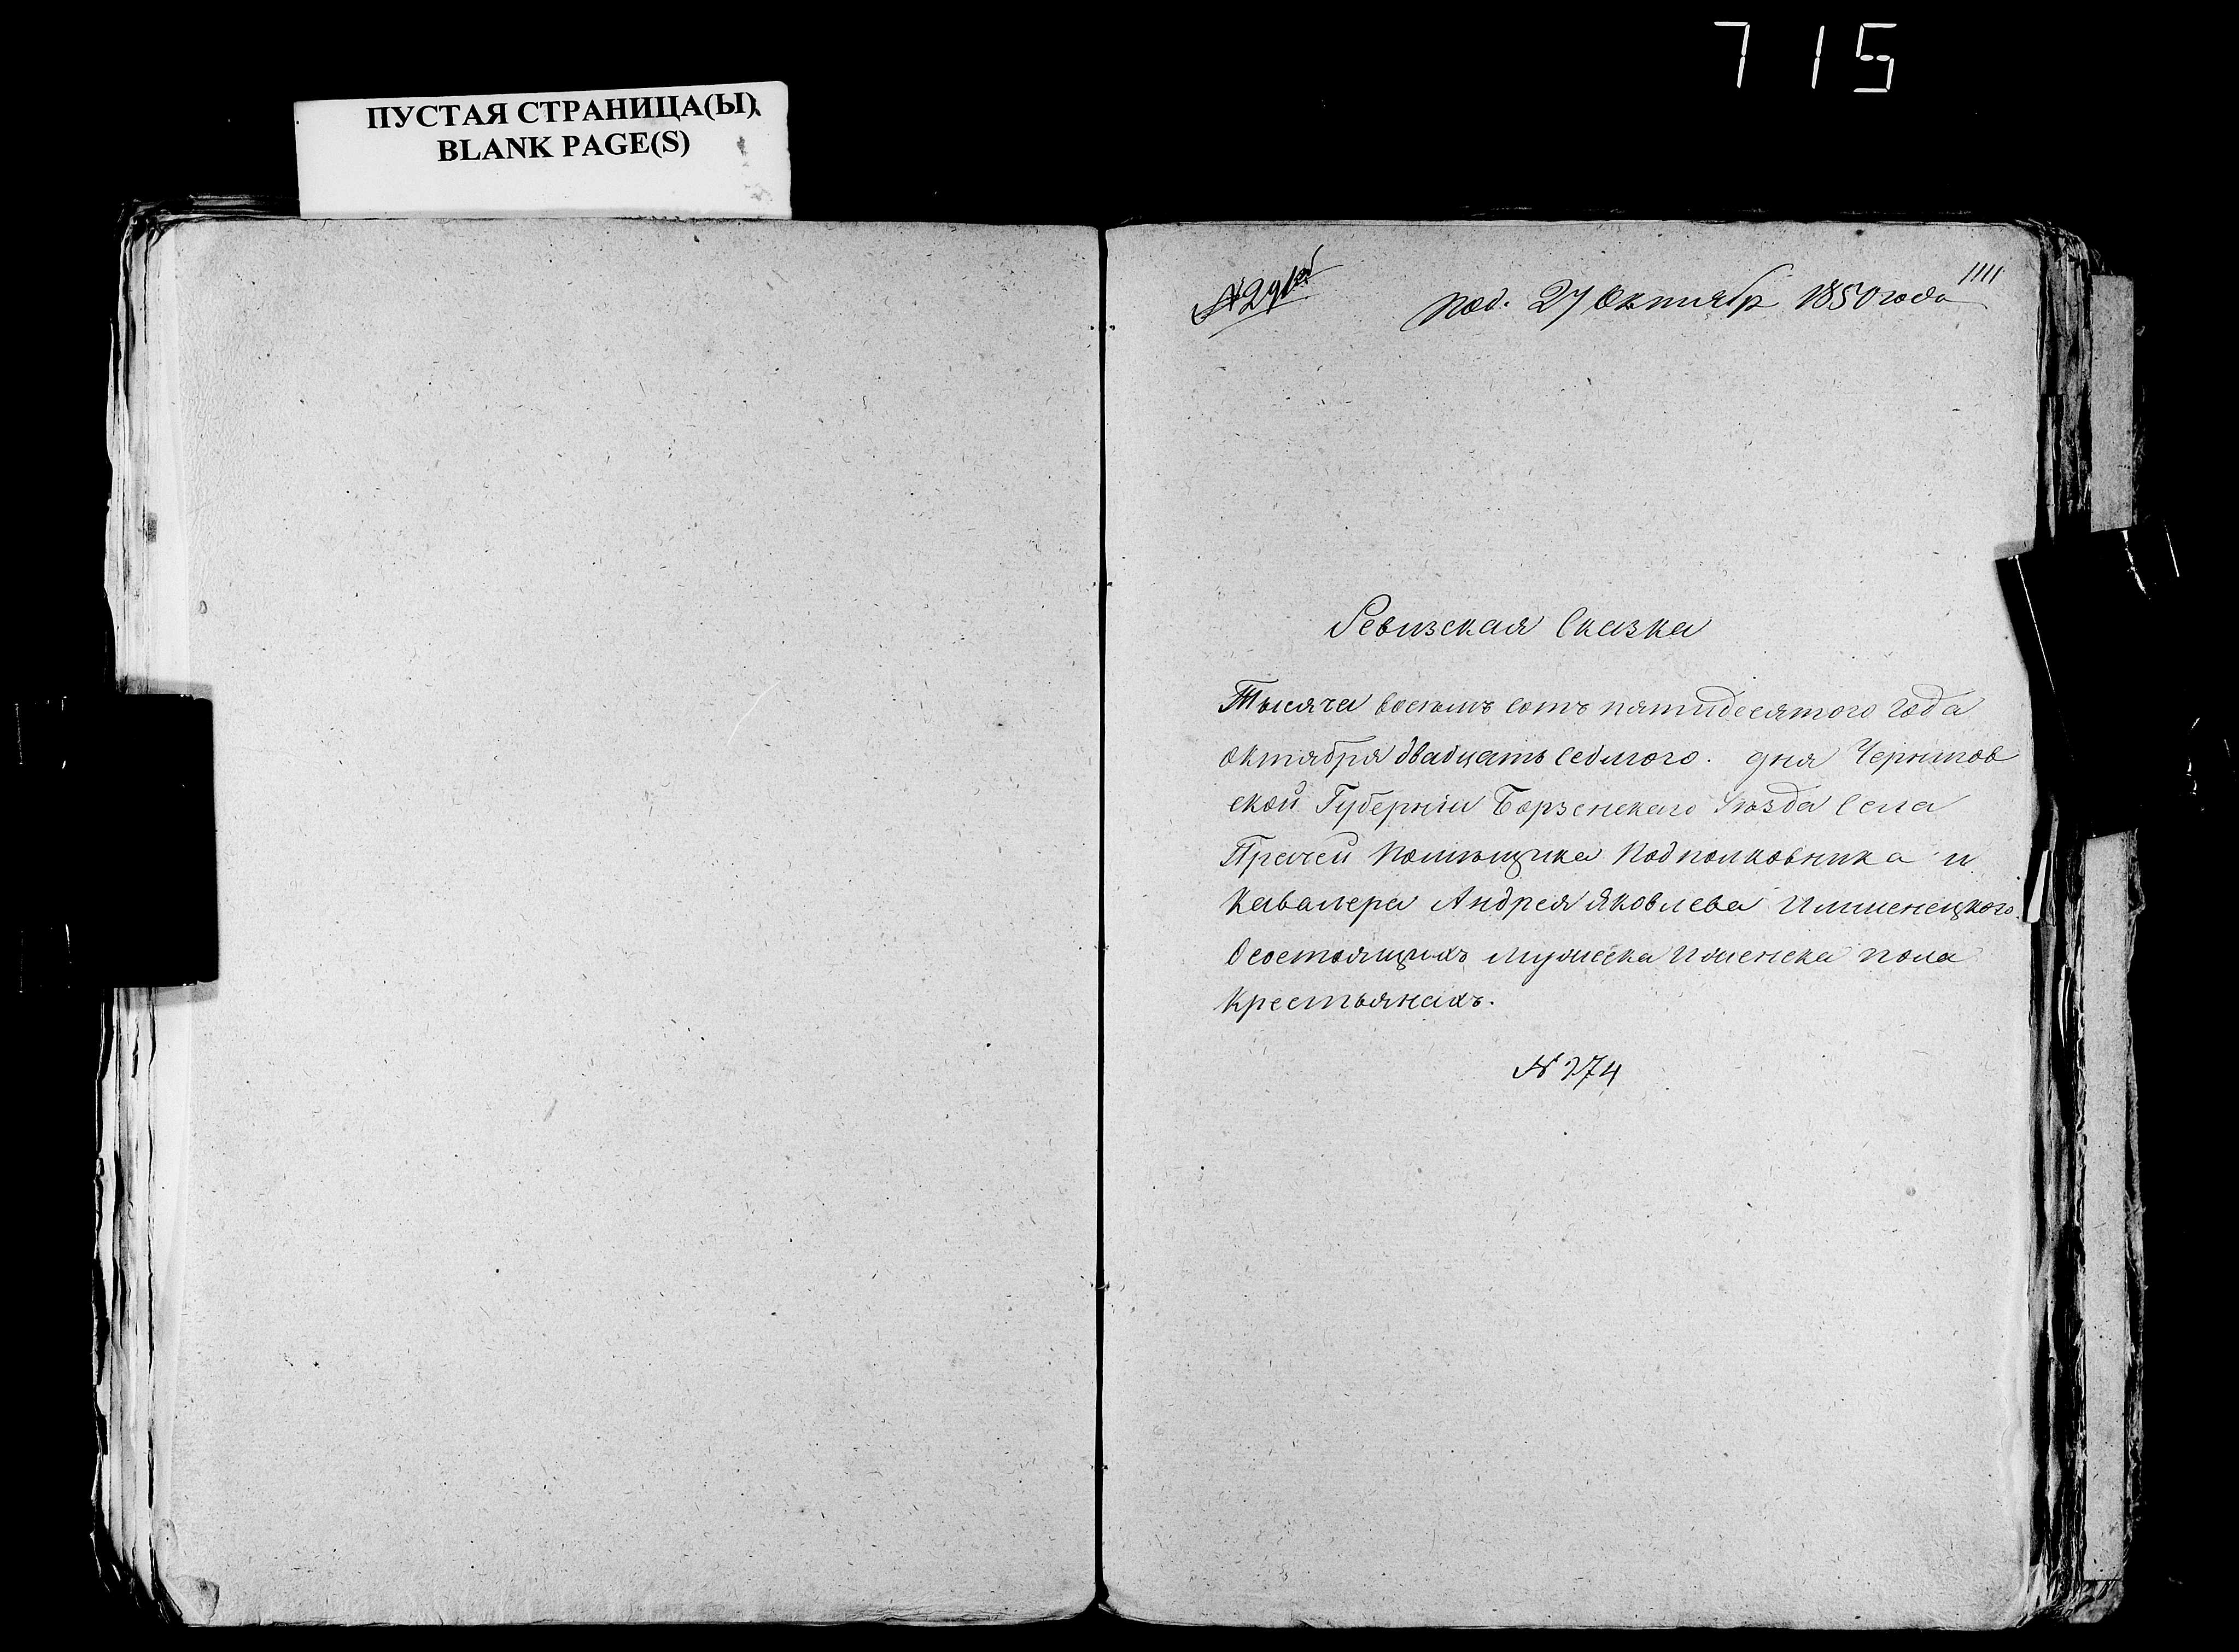 715
ПУСТАЯ СТРАНИЦА(Ы)
BLANK PAGE(S)
№291й
Под. 27 Октябр 1850 года
1111
Ревизская Сказка
Тысяча восемь сотъ пятидесятого года
октября двадцать седмого. дня Чернигов
ской Губерніи Борзенскаго Уѣзда Села
Прачей Помѣщика Подполковника и
Кавалера Андрея Яковлева Илляшенецкого
О состоящихъ мужеска и женска пола
Крестьянахъ.
№ 274